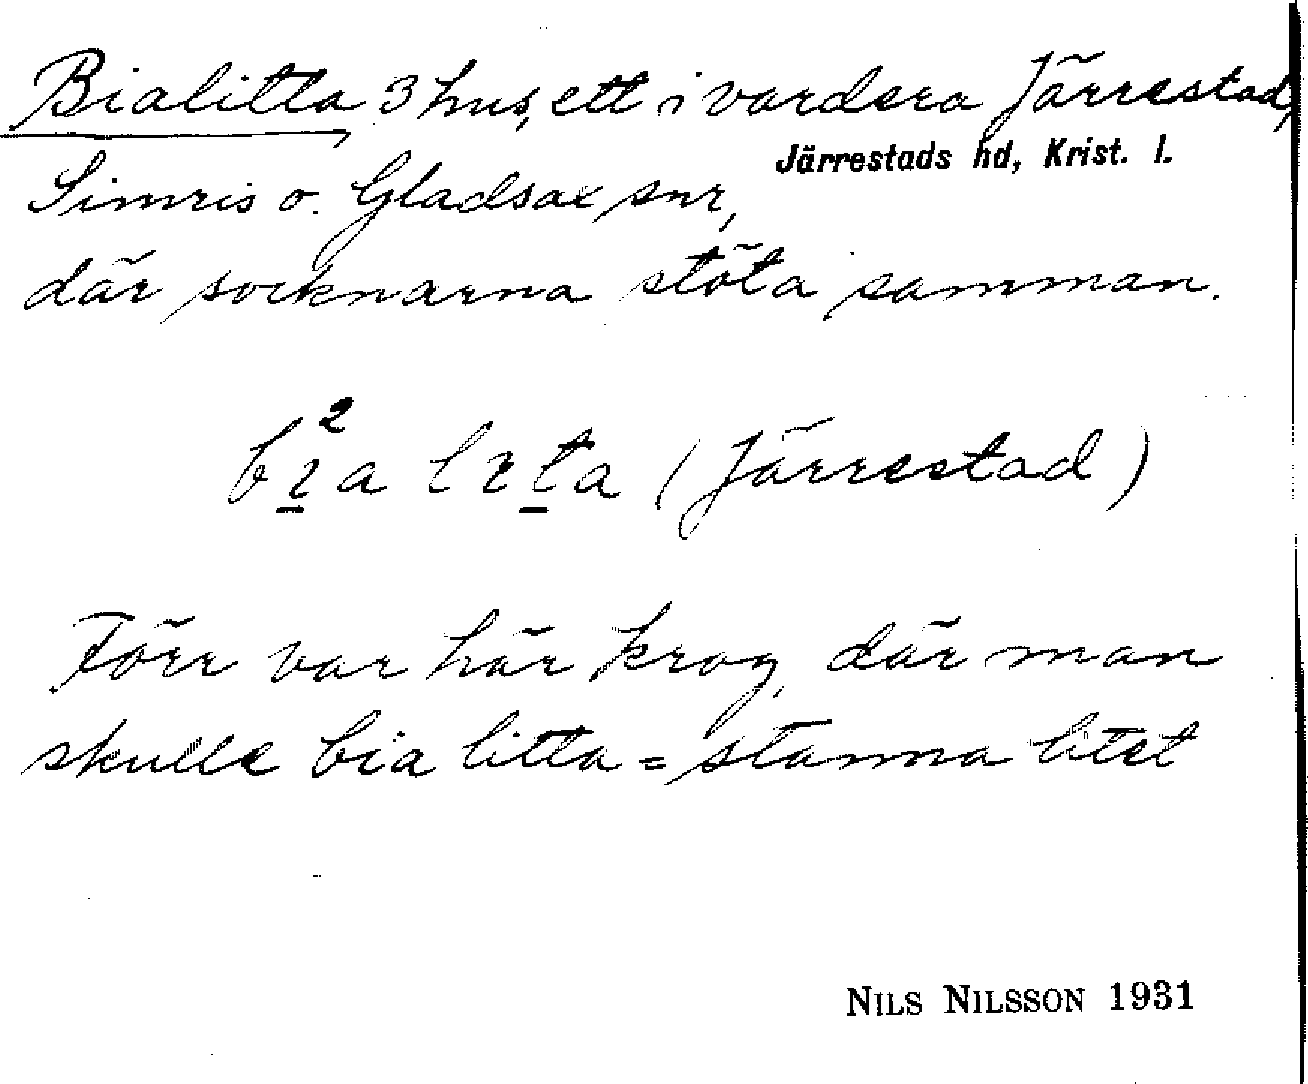 Bialitta, 3 hus, ett i vardera Järrestad,
Järrestads hd, Krist. l.
Simris o. Gladsax snr,
där socknarna stöta samman.
bɩ²a lɩta (Järrestad)
Förr var här krog, där man
skulle bia litta = stanna litet
NILS NILSSON 1931